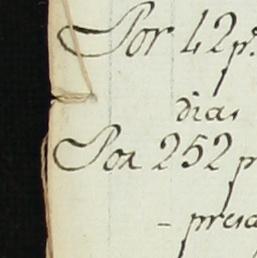 Por 42 p.
dias
Por 252 p
- presa